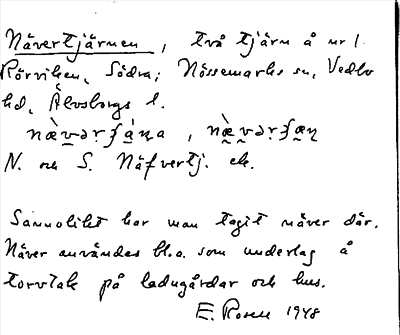 Nävertjärnen, två tjärn å nr 1
Rörviken, Södra; Nössemarks sn, Vedbo
hd, Älvsborgs l.
N. och S. Näfvertj. ek.
Sannolikt har man tagit näver där.
Näver användes bl.a. som underlag å
torvtak på ladugårdar och hus.
E. Rosell 1948